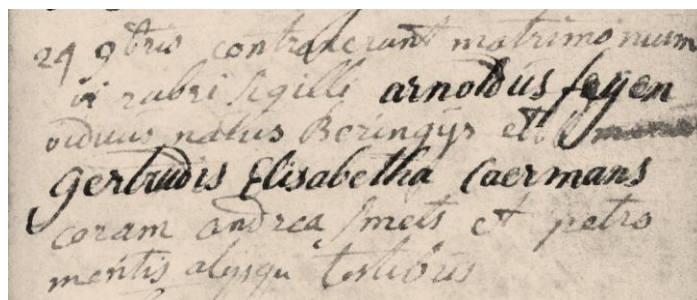 24 9bris contraxerunt matrimonium
vi rubri sigilli arnoldus feyen
viduus natus Beringijs et
gertrudis Elisabetha Caermans
coram andrea smets et petro
mentis alysqu testibus